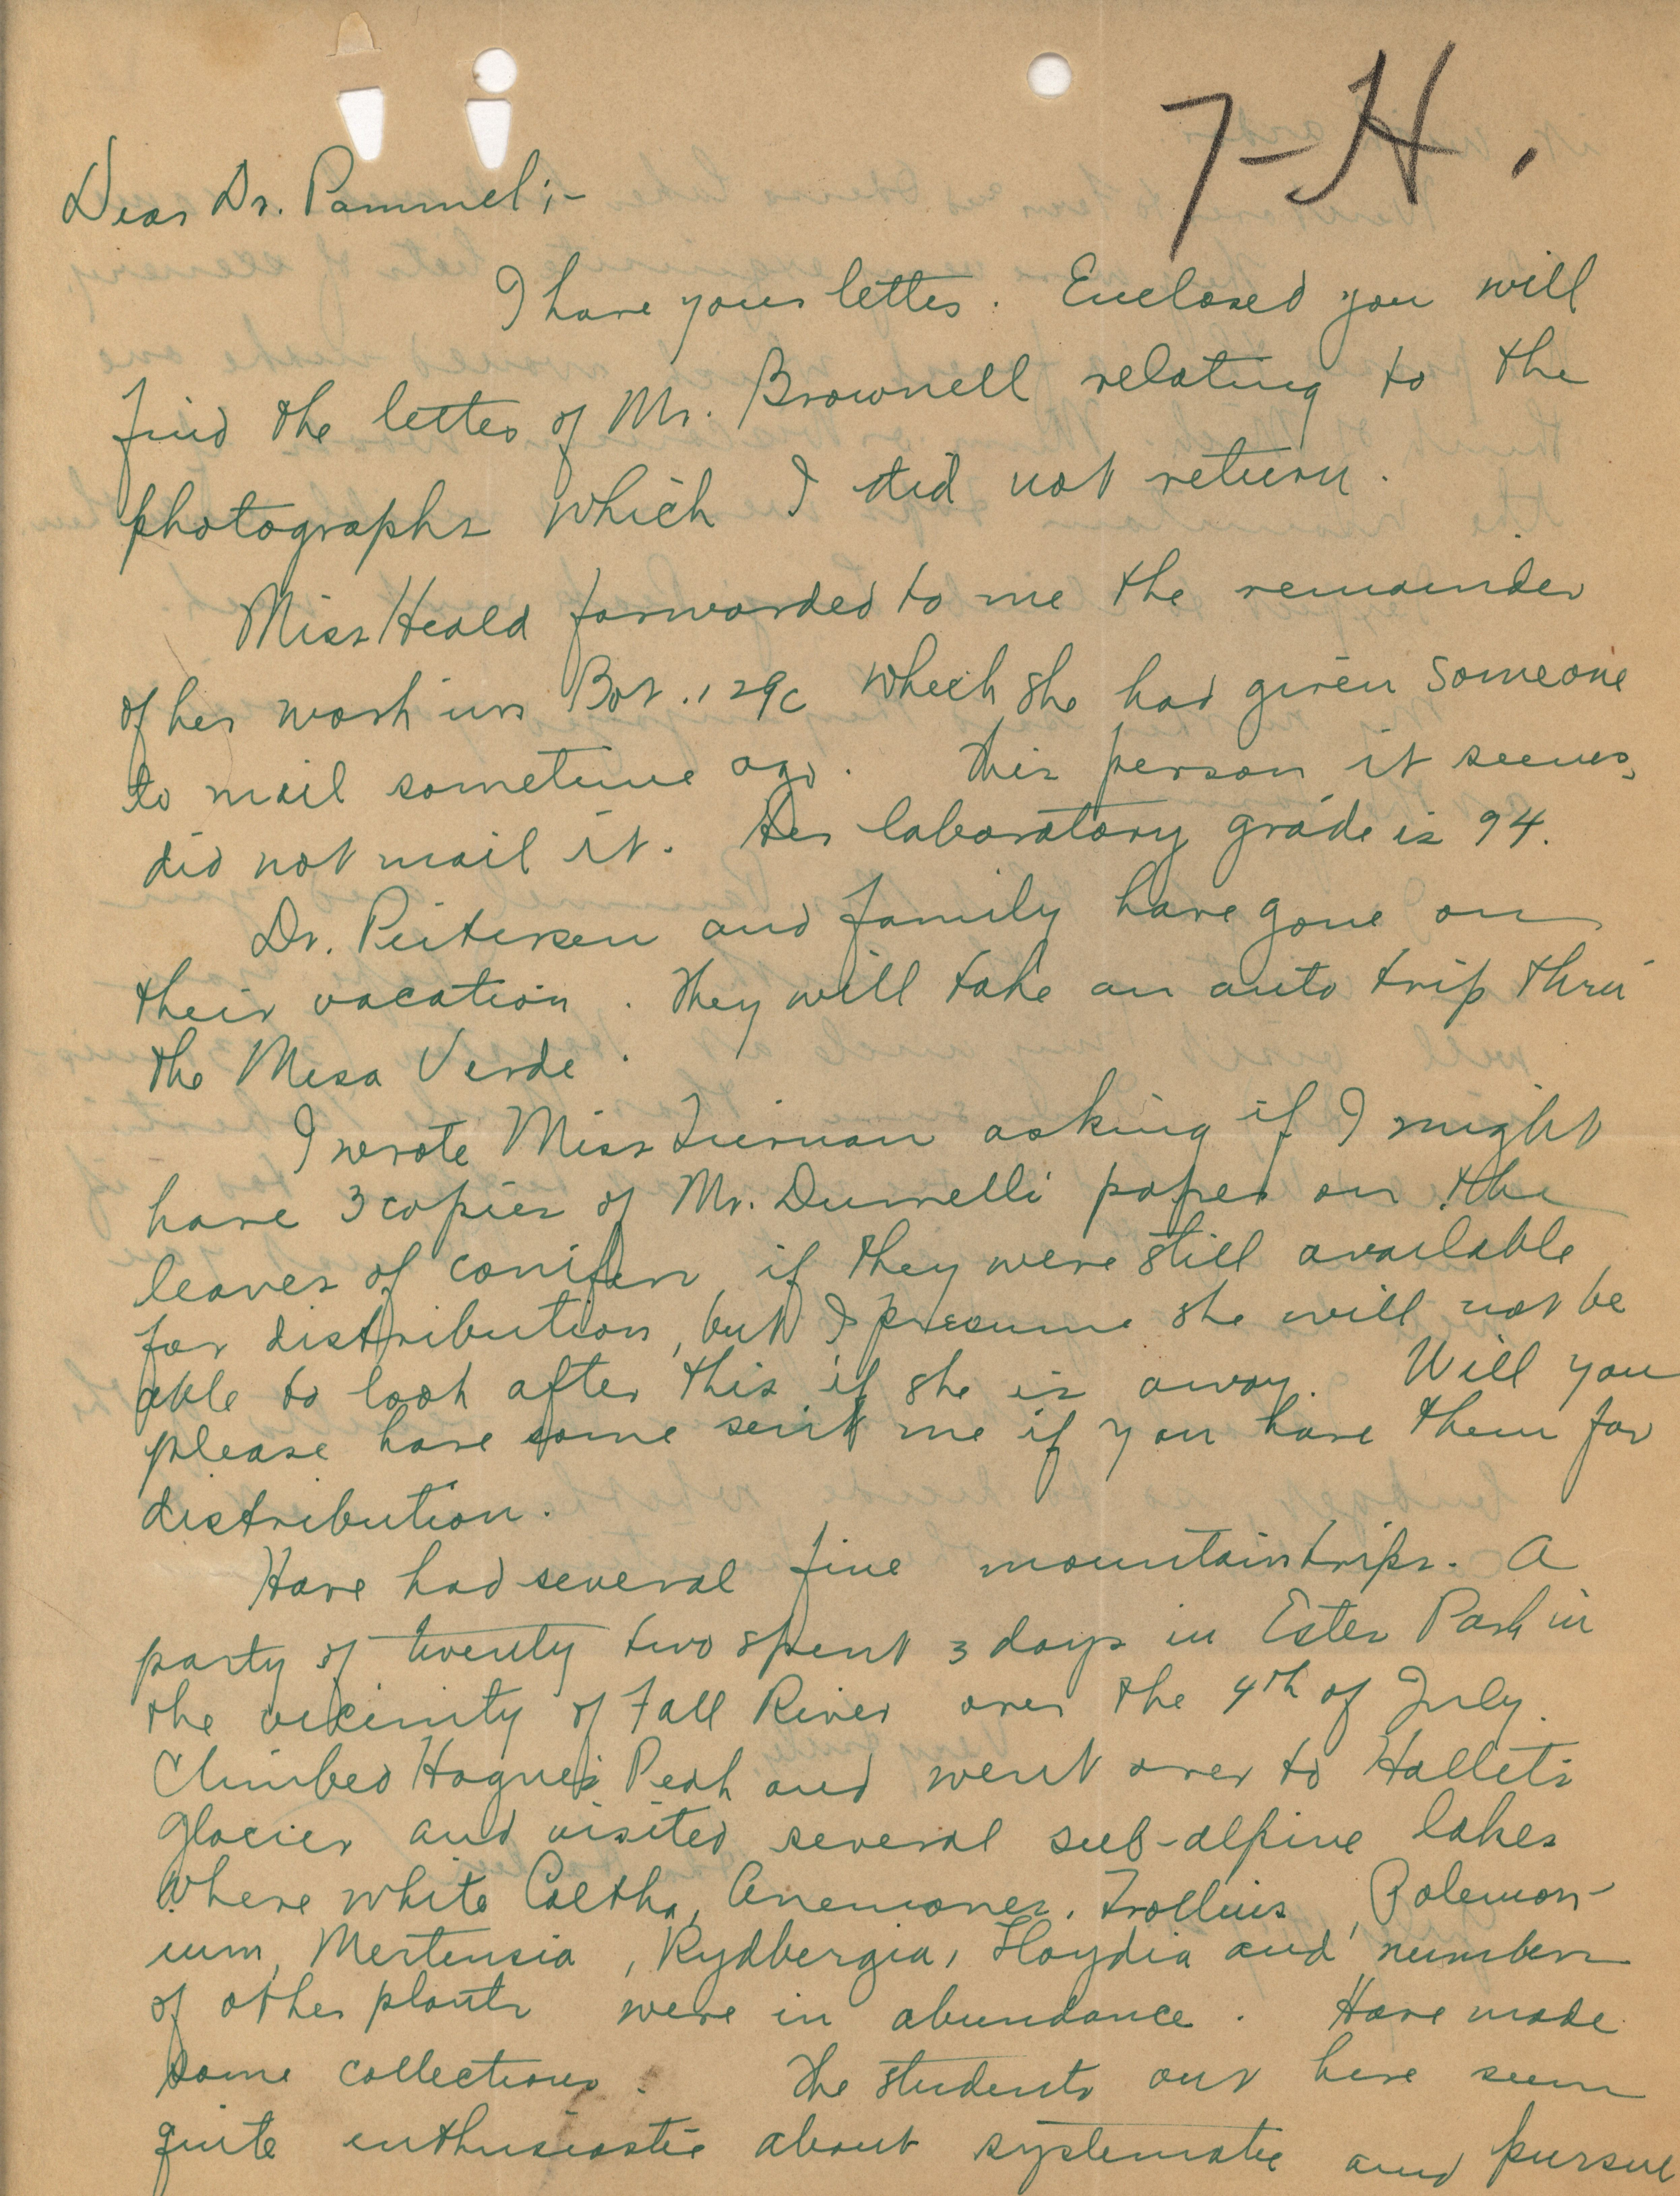 7-H.
Dear Dr. Pammel;-
I have your letter. Enclosed you will
find the letter of Mr. Brownell relating to the
photographs which I did not return.
Miss Heald forwarded to me the remainder
of her work in Bot. 129c which she had given someone
to mail sometime ago. This person it seems,
did not mail it. Her laboratory grade is 94.
Dr. Peitersen and family have gone on
their vacation. They will take an auto trip thru
the Mesa Verde.
I wrote Miss Tiernan asking if I might
have 3 copies of Mr. paper on the
leaves of conifers if they were still available
for distribution, but I presume she will not be
able to look after this if she is away. Will you
please have some sent me if you have them for
distribution.
Have had several fine mountain trips. A
party of twenty two spent 3 days in Estes Park in
the vicinity of Fall River over the 4th of July.
Climbed Hague's Peak and went over to Hallet's
glacier and visited several sub-alpine lakes
where white Caltha, Anemones, Trollius, Polemon-
ium, Mertensia, Rydbergia, Lloydia and numbers
of other plants were in abundance. Have made
some collections. The students out here seem
quite enthusiastic about systematic and pursue